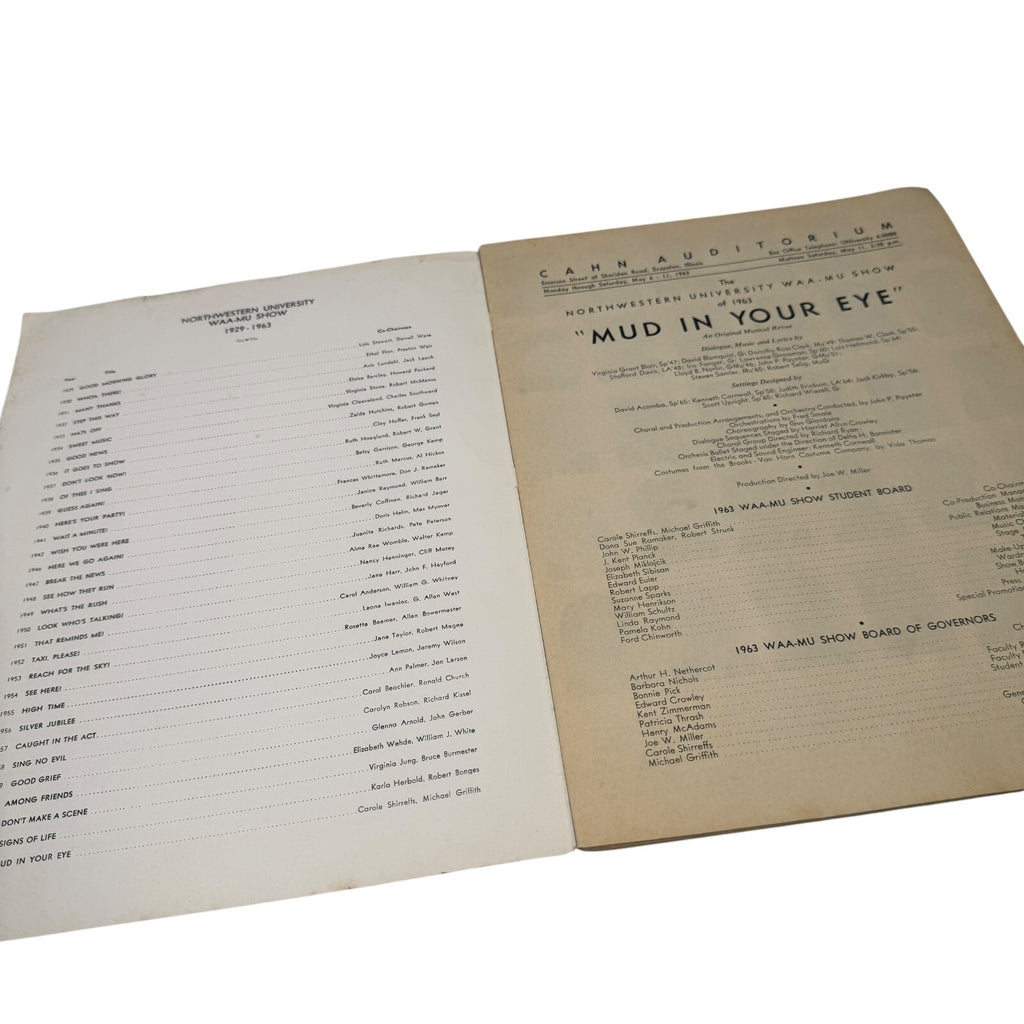 NORTHWESTERN UNIVERSITY
WAA-MU SHOW
1929 - 1963
Year Title Co-Chairmen
1929 GOOD MORNING GLORY Lois Stewart, Darrell Ware
1930 WHOA THERE! Ethel Flinn, Preston Weir
1931 MANY THANKS Avis Lundahl, Jack Leach
1932 STEP THIS WAY Eloise Barclay, Howard Packard
1933 HATS OFF Virginia Stone, Robert McManus
1934 SWEET MUSIC Virginia Cleaveland, Charles Southward
1935 GOOD NEWS Zelda Hutchins, Robert Goman
1936 IT GOES TO SHOW Clay Hoffer, Frank Seyl
1937 DON'T LOOK NOW! Ruth Hoaglund, Robert W. Grant
1938 OF THEE I SING Betsy Garrison, George Kemp
1939 GUESS AGAIN! Ruth Marcus, Al Hickox
1940 HERE'S YOUR PARTY! Frances Whittemore, Don J. Ramaker
1941 WAIT A MINUTE! Janice Raymond, William Barr
1942 WISH YOU WERE HERE Beverly Coffman, Richard Jager
1946 HERE WE GO AGAIN! Doris Helm, Max Myover
1947 BREAK THE NEWS Juanita Richards, Pete Peterson
1948 SEE HOW THEY RUN Alma Rae Womble, Walter Kemp
1949 WHAT'S THE RUSH Nancy Henninger, Cliff Mezey
1950 LOOK WHO'S TALKING! Jane Harr, John F. Hayford
1951 THAT REMINDS ME! Carol Anderson, William G. Whitney
1952 TAXI, PLEASE! Leona Iwaniec, G. Allan West
1953 REACH FOR THE SKY! Rosetta Beamer, Allan Bowermaster
1954 SEE HERE! Jane Taylor, Robert Magee
1955 HIGH TIME Joyce Lemon, Jeremy Wilson
956 SILVER JUBILEE Ann Palmer, Jon Larson
57 CAUGHT IN THE ACT Carol Beachler, Ronald Church
8 SING NO EVIL Carolyn Robson, Richard Kissel
9 GOOD GRIEF Glenna Arnold, John Gerber
AMONG FRIENDS Elizabeth Wehde, William J. White
DON'T MAKE A SCENE Virginia Jung, Bruce Burmester
SIGNS OF LIFE Karla Herbold, Robert Bonges
UD IN YOUR EYE Carole Shirreffs, Michael Griffith
CAHN AUDITORIUM
Emerson Street at Sheridan Road, Evanston, Illinois Box Office Telephone: UNiversity 4-5080
Monday through Saturday, May 6 - 11, 1963 Matinee Saturday, May 11, 2:30 p.m.
The
NORTHWESTERN UNIVERSITY WAA-MU SHOW
of 1963
"MUD IN YOUR EYE"
An Original Musical Revue
Dialogue, Music and Lyrics by
Virginia Grant Blair, Sp'47; David Blomquist, G; Dorothy Ross Clark, Mu'49; Thomas W. Clark, Sp'55;
Stafford Davis, LA'48; Iris Fanger, G; Lawrence Grossman, Sp'60; Lois Hellmund, Sp'64;
Lloyd B. Norlin, GMu'46; John P. Paynter, GMu'51;
Steven Samler, Mu'65; Robert Selig, MuG
Settings Designed by
David Acomba, Sp'65; Kenneth Cornwall, Sp'58; Judith Erickson, LA'64; Jack Kirkby, Sp'56;
Scott Upright, Sp'65; Richard Wiezell, G
Choral and Production Arrangements, and Orchestra Conducted, by John P. Paynter
Orchestrations by Fred Smale
Choreography by Gus Giordano
Dialogue Sequences Staged by Harriet Allyn Crowley
Choral Group Directed by Richard Ryan
Orchesis Ballet Staged under the Direction of Delta H. Bannister
Electric and Sound Engineer: Kenneth Cornwall
Costumes from the Brooks - Van Horn Costume Company, by Vida Thomas
Production Directed by Joe W. Miller
1963 WAA-MU SHOW STUDENT BOARD
Carole Shirreffs, Michael Griffith Co-Chairm
Dona Sue Ramaker, Robert Strunk Co-Production Manag
John W. Phillip Business Man
J. Kent Planck Public Relations Ma
Joseph Miklojcik Material
Elizabeth Sibisan Music C
Edward Euler Stage
Robert Lapp
Suzanne Sparks Make-Up
Mary Henrikson Wardr
William Schultz Show B
Linda Raymond H
Pamela Kohn Press
Ford Chinworth Special Promotio
1963 WAA-MU SHOW BOARD OF GOVERNORS
Arthur H. Nethercot Ch
Barbara Nichols
Bonnie Pick
Edward Crowley Faculty
Kent Zimmerman Faculty
Patricia Thrash Student
Henry McAdams
Joe W. Miller Gene
Carole Shirreffs
Michael Griffith